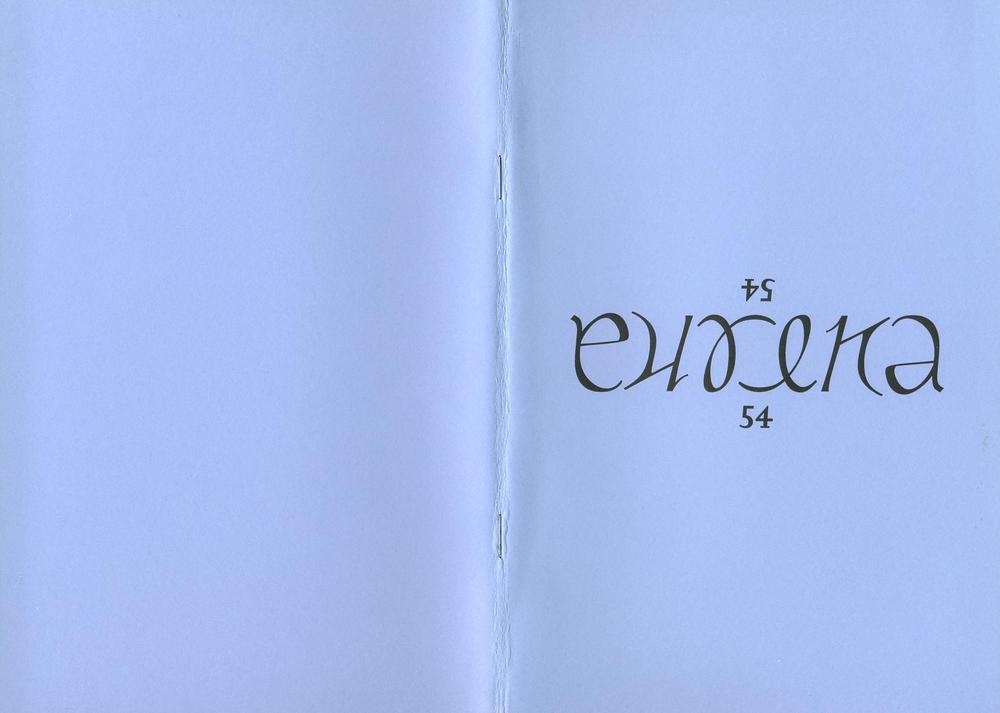 54
eureka
54